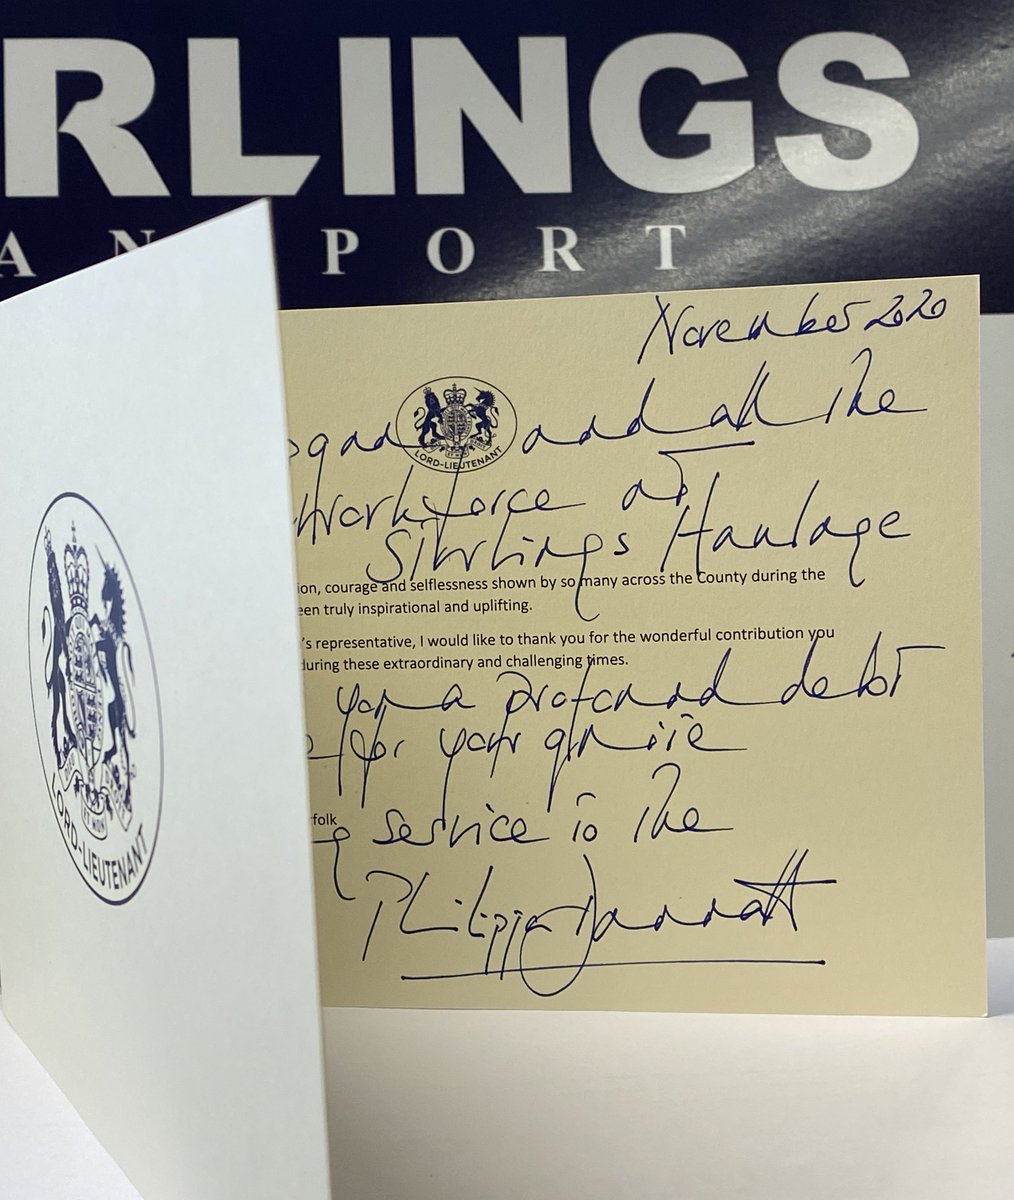 RLINGS
AN PORT
November 2020
LORD-LIEUTENANT
and all the
Workforce at
Stirlings Haulage
ion, courage and selflessness shown by so many across the County during the
een truly inspirational and uplifting.
's representative, I would like to thank you for the wonderful contribution you
during these extraordinary and challenging times.
you a profound debt
for your
folk
service to the
Philippa Dannatt
LORD-LIEUTENANT